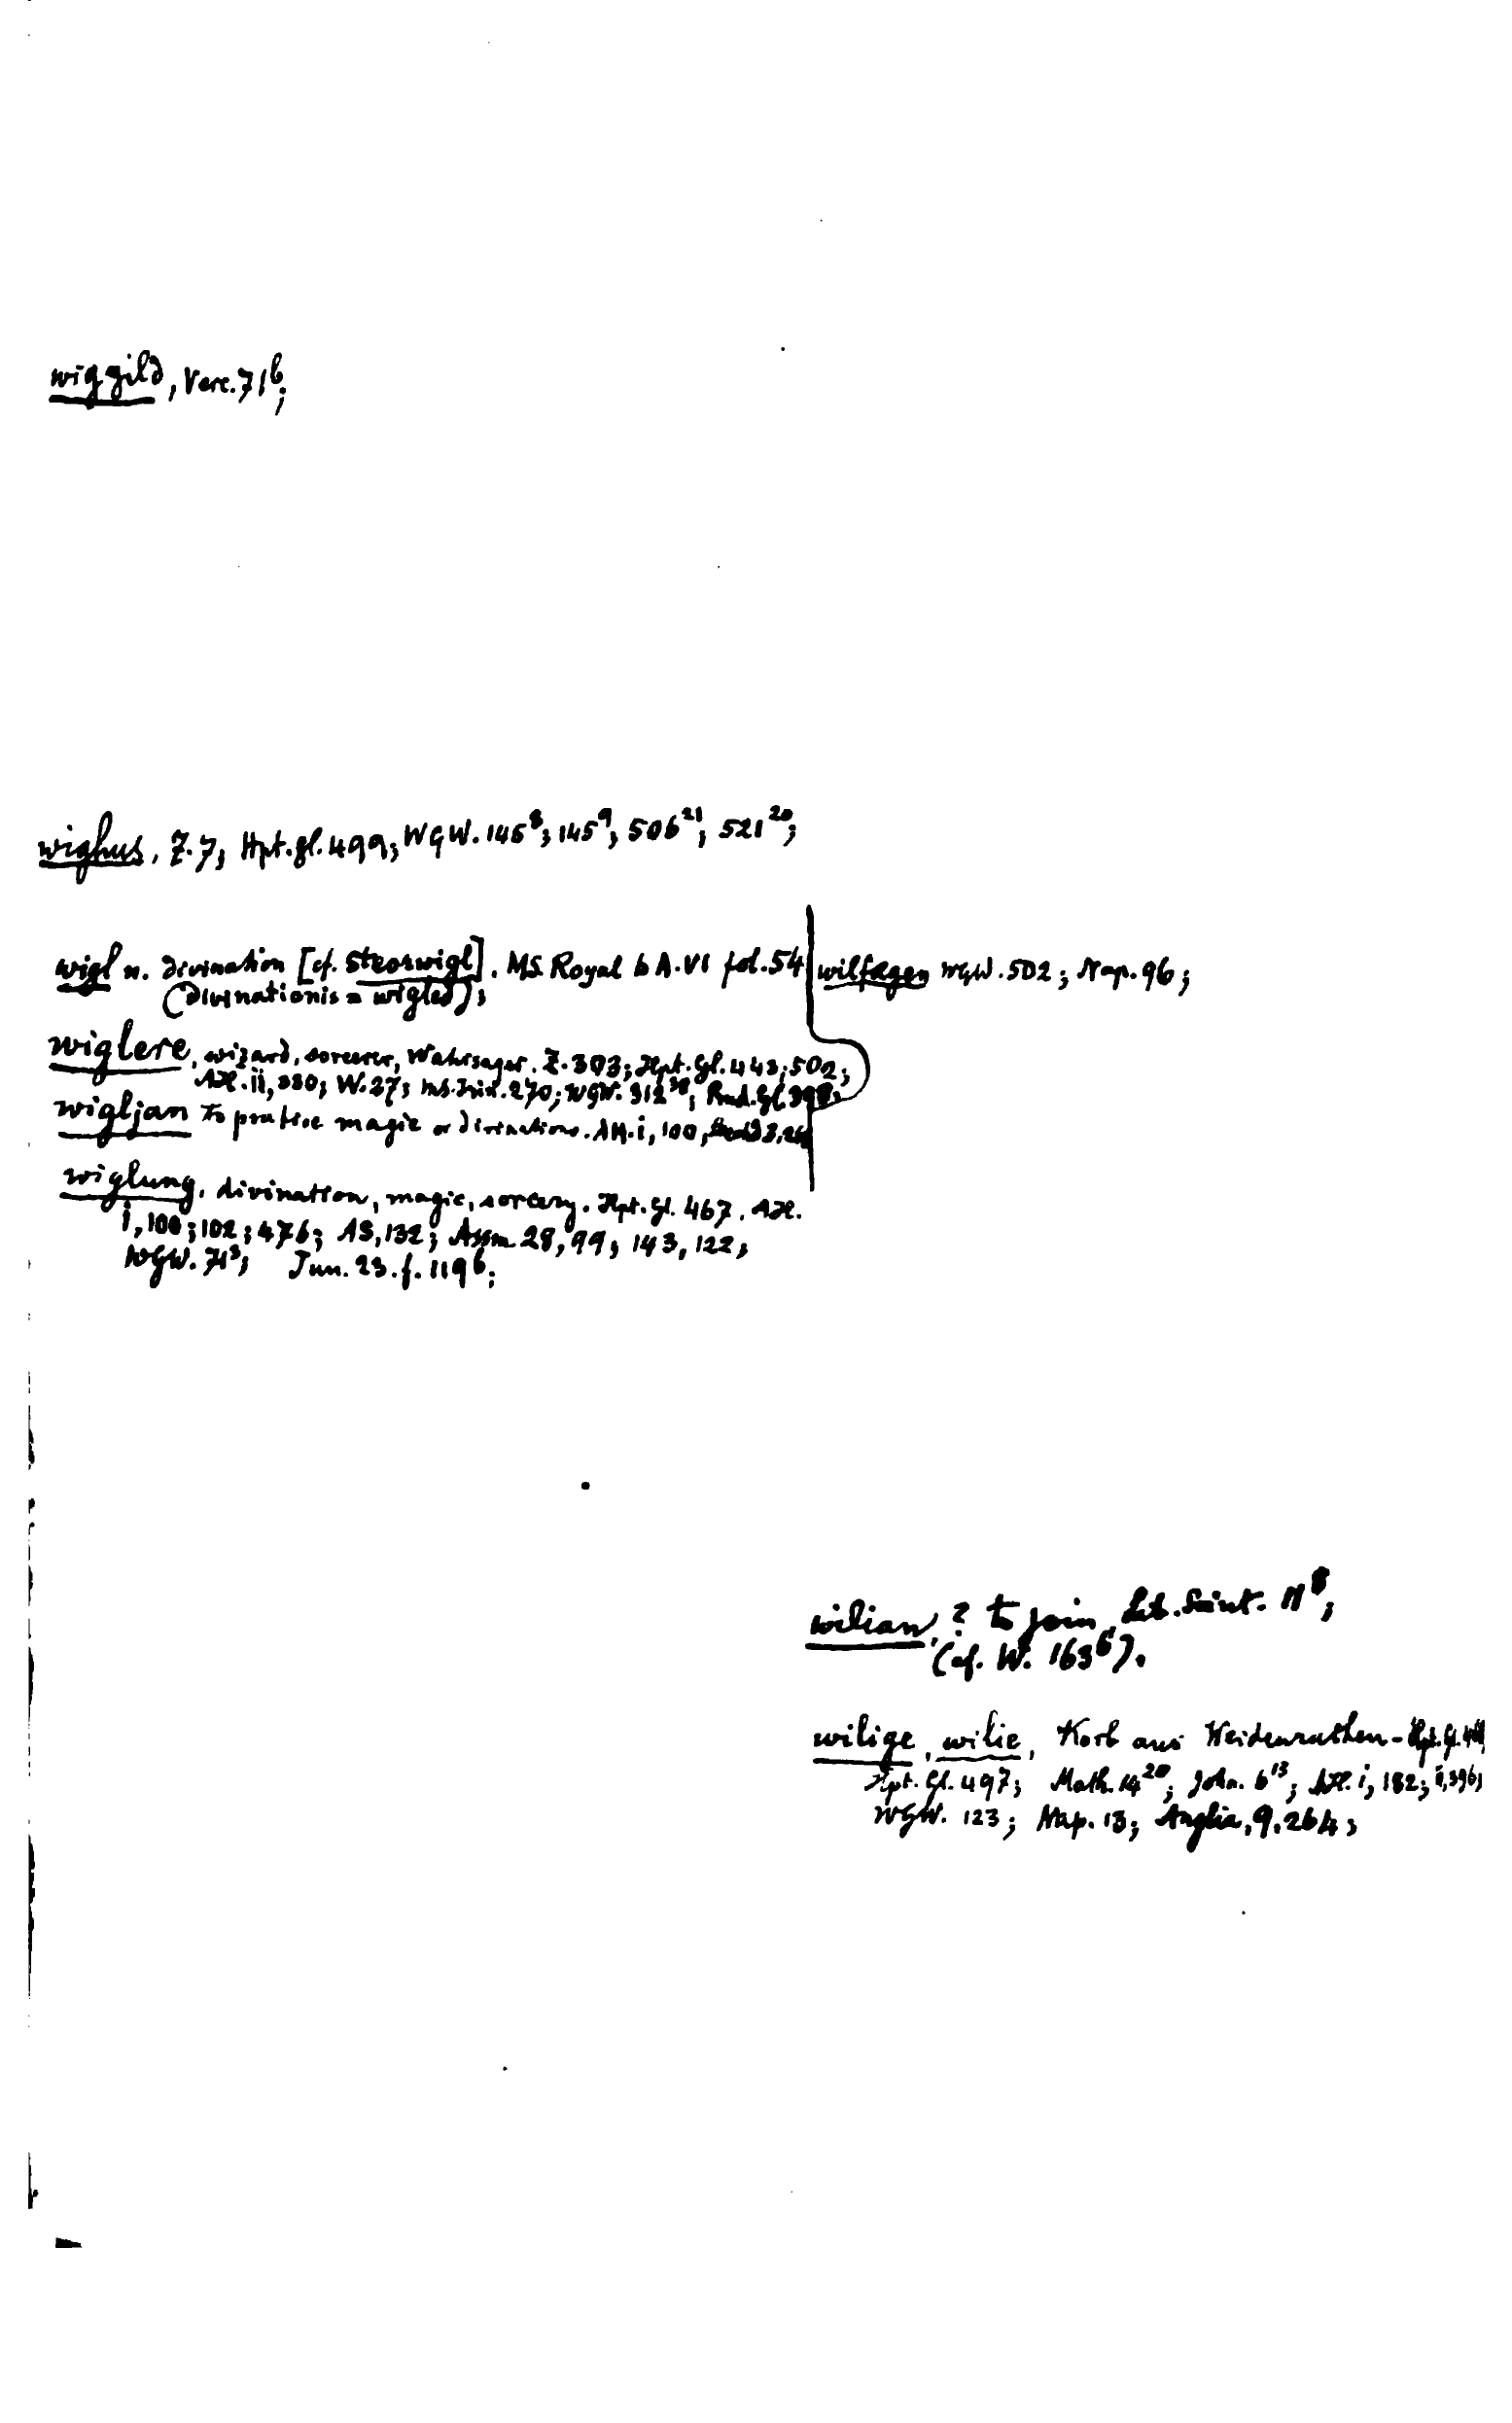 wiggild, Verc. 71b;
wighus, Z. 7; Hpt. gl. 499; WGW. 145⁸; 145⁹; 506²¹; 521²⁰;
wigl n. divination [cf. steorwigl]. MS. Royal 6 A. VI fol. 54
(divinationis = wigles);
wiglere, wizard, sorcerer, Wahrsager. Z. 303; Hpt. Gl. 443; 502;
AH. ii, 330; W. 27; 270; WGW. 312³⁸;
wigljan to pratise magic or divinations. AH. i, 100,
wiglung, divination, magic, sorcery. Hpt. Gl. 467. AH.
i, 100; 102; 476; AS, 132; Assm. 28, 99; 143, 122;
WGW. 71³; Jun. 23. f. 119b;
wilfægen WGW. 502; Nap. 96;
wilian, ? to join, Lib. Scint. 11⁸;
(cf. W. 163⁶).
wilige, wilie, Korb aus Weidenruthen -
Hpt. Gl. 497; Math. 14²⁰; John. 6¹³; AH. i, 182; ii, 396;
WGW. 123; Nap. 13; Anglia, 9, 264;